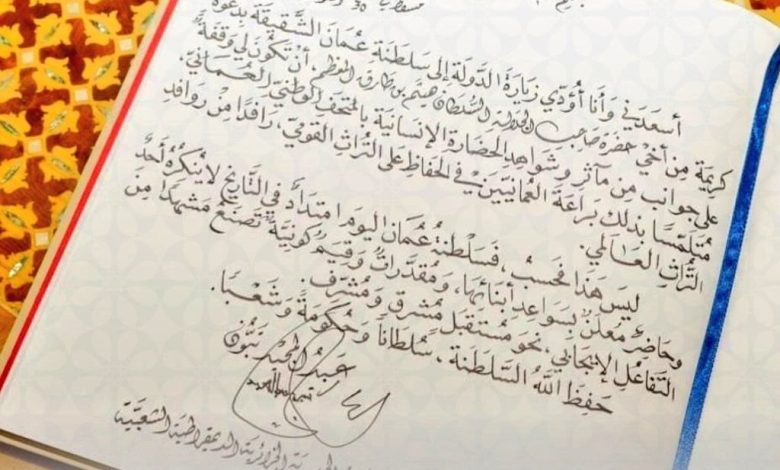 مسقط
أسعدني وأنا أؤدي زيارة الدولة إلى سلطنة عُمان الشقيقة بدعوة
كريمة من أخي حضرة صاحب الجلالة السلطان هيثم بن طارق المعظم، أن تكون لي وقفة
على جوانب من مآثر وشواهد الحضارة الإنسانية بالمتحف الوطني العُماني،
مُتلمّسا بذلك براعة العُمانيّين في الحفاظ على التراث القومي، رافدًا من روافد
التراث العالمي.
ليس هذا فحسبُ، فسلطنةُ عُمان اليوم امتدادٌ في التاريخ لا ينكره أحدٌ
وحاضرٌ معلنٌ بسواعد أبنائها، ومُقدّراتٌ وقيمٌ كونيّةٌ تصنعُ مشهدًا من
التفاعل الإيجابي، نحو مستقبل مُشرق ومُشرّف.
حفظ اللهُ السلطنة، سُلطانًا وحُكومةً وشعبًا.
عبد المجيد تبون
الجزائرية الديمقراطية الشعبية